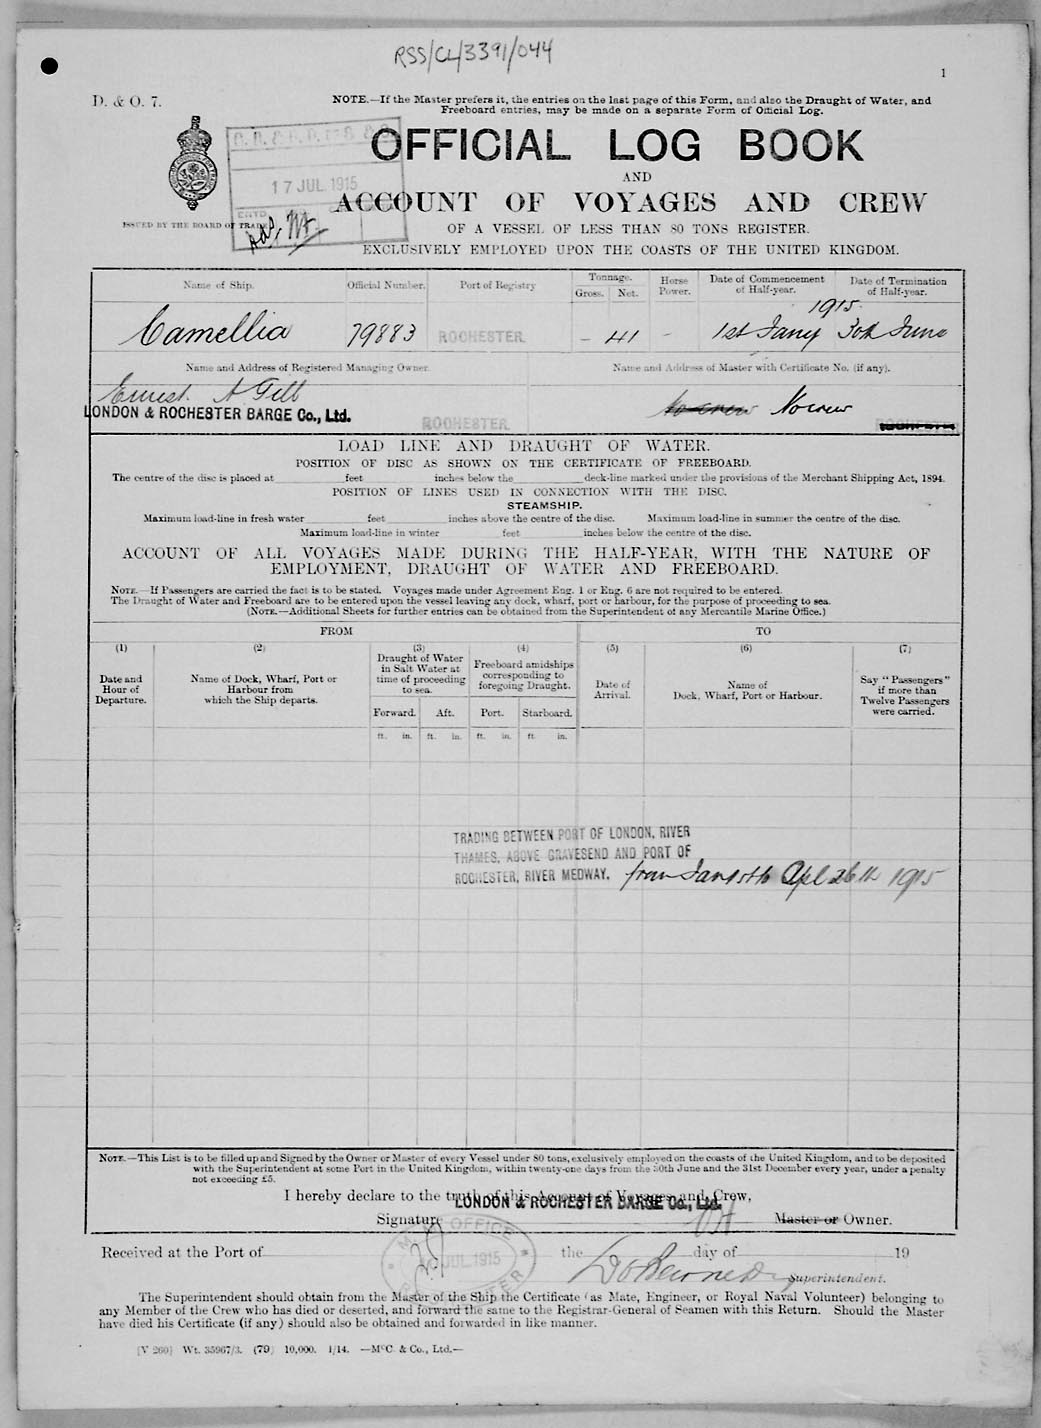 RSS/CL/3391/044
1
D. & O. 7.
NOTE.—If the Master prefers it, the entries on the last page of this Form, and also the Draught of Water, and
Freeboard entries, may be made on a separate Form of Official Log.
OFFICIAL LOG BOOK
AND
17 JUL 1915
ACCOUNT OF VOYAGES AND CREW
ENTD
ISSUED BY THE BOARD OF TRADE
OF A VESSEL OF LESS THAN 80 TONS REGISTER.
EXCLUSIVELY EMPLOYED UPON THE COASTS OF THE UNITED KINGDOM.
Name of Ship. Official Number. Port of Registry Tonnage. Gross. Net. Horse Power. Date of Commencement of Half-year. Date of Termination of Half-year.
1915
Camellia 79883 ROCHESTER - 41 - 1st Jany 30th June
Name and Address of Registered Managing Owner. Name and Address of Master with Certificate No. (if any).
Ernest A Gill
LONDON & ROCHESTER BARGE Co., Ltd. No crew No crew
ROCHESTER ROCHESTER
LOAD LINE AND DRAUGHT OF WATER.
POSITION OF DISC AS SHOWN ON THE CERTIFICATE OF FREEBOARD.
The centre of the disc is placed at feet inches below the deck-line marked under the provisions of the Merchant Shipping Act, 1894.
POSITION OF LINES USED IN CONNECTION WITH THE DISC.
STEAMSHIP.
Maximum load-line in fresh water feet inches above the centre of the disc. Maximum load-line in summer the centre of the disc.
Maximum load-line in winter feet inches below the centre of the disc.
ACCOUNT OF ALL VOYAGES MADE DURING THE HALF-YEAR, WITH THE NATURE OF
EMPLOYMENT, DRAUGHT OF WATER AND FREEBOARD.
NOTE.—If Passengers are carried the fact is to be stated. Voyages made under Agreement Eng. 1 or Eng. 6 are not required to be entered.
The Draught of Water and Freeboard are to be entered upon the vessel leaving any dock, wharf, port or harbour, for the purpose of proceeding to sea.
(NOTE.—Additional Sheets for further entries can be obtained from the Superintendent of any Mercantile Marine Office.)
FROM TO
(1) (2) (3) (4) (5) (6) (7)
Date and Hour of Departure. Name of Dock, Wharf, Port or Harbour from which the Ship departs. Draught of Water in Salt Water at time of proceeding to sea. Freeboard amidships corresponding to foregoing Draught. Date of Arrival. Name of Dock, Wharf, Port or Harbour. Say "Passengers" if more than Twelve Passengers were carried.
Forward. Aft. Port. Starboard.
ft. in. ft. in. ft. in. ft. in.
TRADING BETWEEN PORT OF LONDON, RIVER
THAMES, ABOVE GRAVESEND AND PORT OF
ROCHESTER, RIVER MEDWAY. from Jan 1st to Apl 26th 1915
NOTE.—This List is to be filled up and Signed by the Owner or Master of every Vessel under 80 tons, exclusively employed on the coasts of the United Kingdom, and to be deposited
with the Superintendent at some Port in the United Kingdom, within twenty-one days from the 30th June and the 31st December every year, under a penalty
not exceeding £5.
I hereby declare to the truth of this Account of Voyages and Crew,
LONDON & ROCHESTER BARGE Co., Ltd.
Signature Master or Owner.
M. M. OFFICE
JUL 1915
ROCHESTER
Received at the Port of the day of 19
Superintendent.
The Superintendent should obtain from the Master of the Ship the Certificate (as Mate, Engineer, or Royal Naval Volunteer) belonging to
any Member of the Crew who has died or deserted, and forward the same to the Registrar-General of Seamen with this Return. Should the Master
have died his Certificate (if any) should also be obtained and forwarded in like manner.
[V 260] Wt. 35967/3. (79) 10,000. 1/14. —McC. & Co., Ltd.—